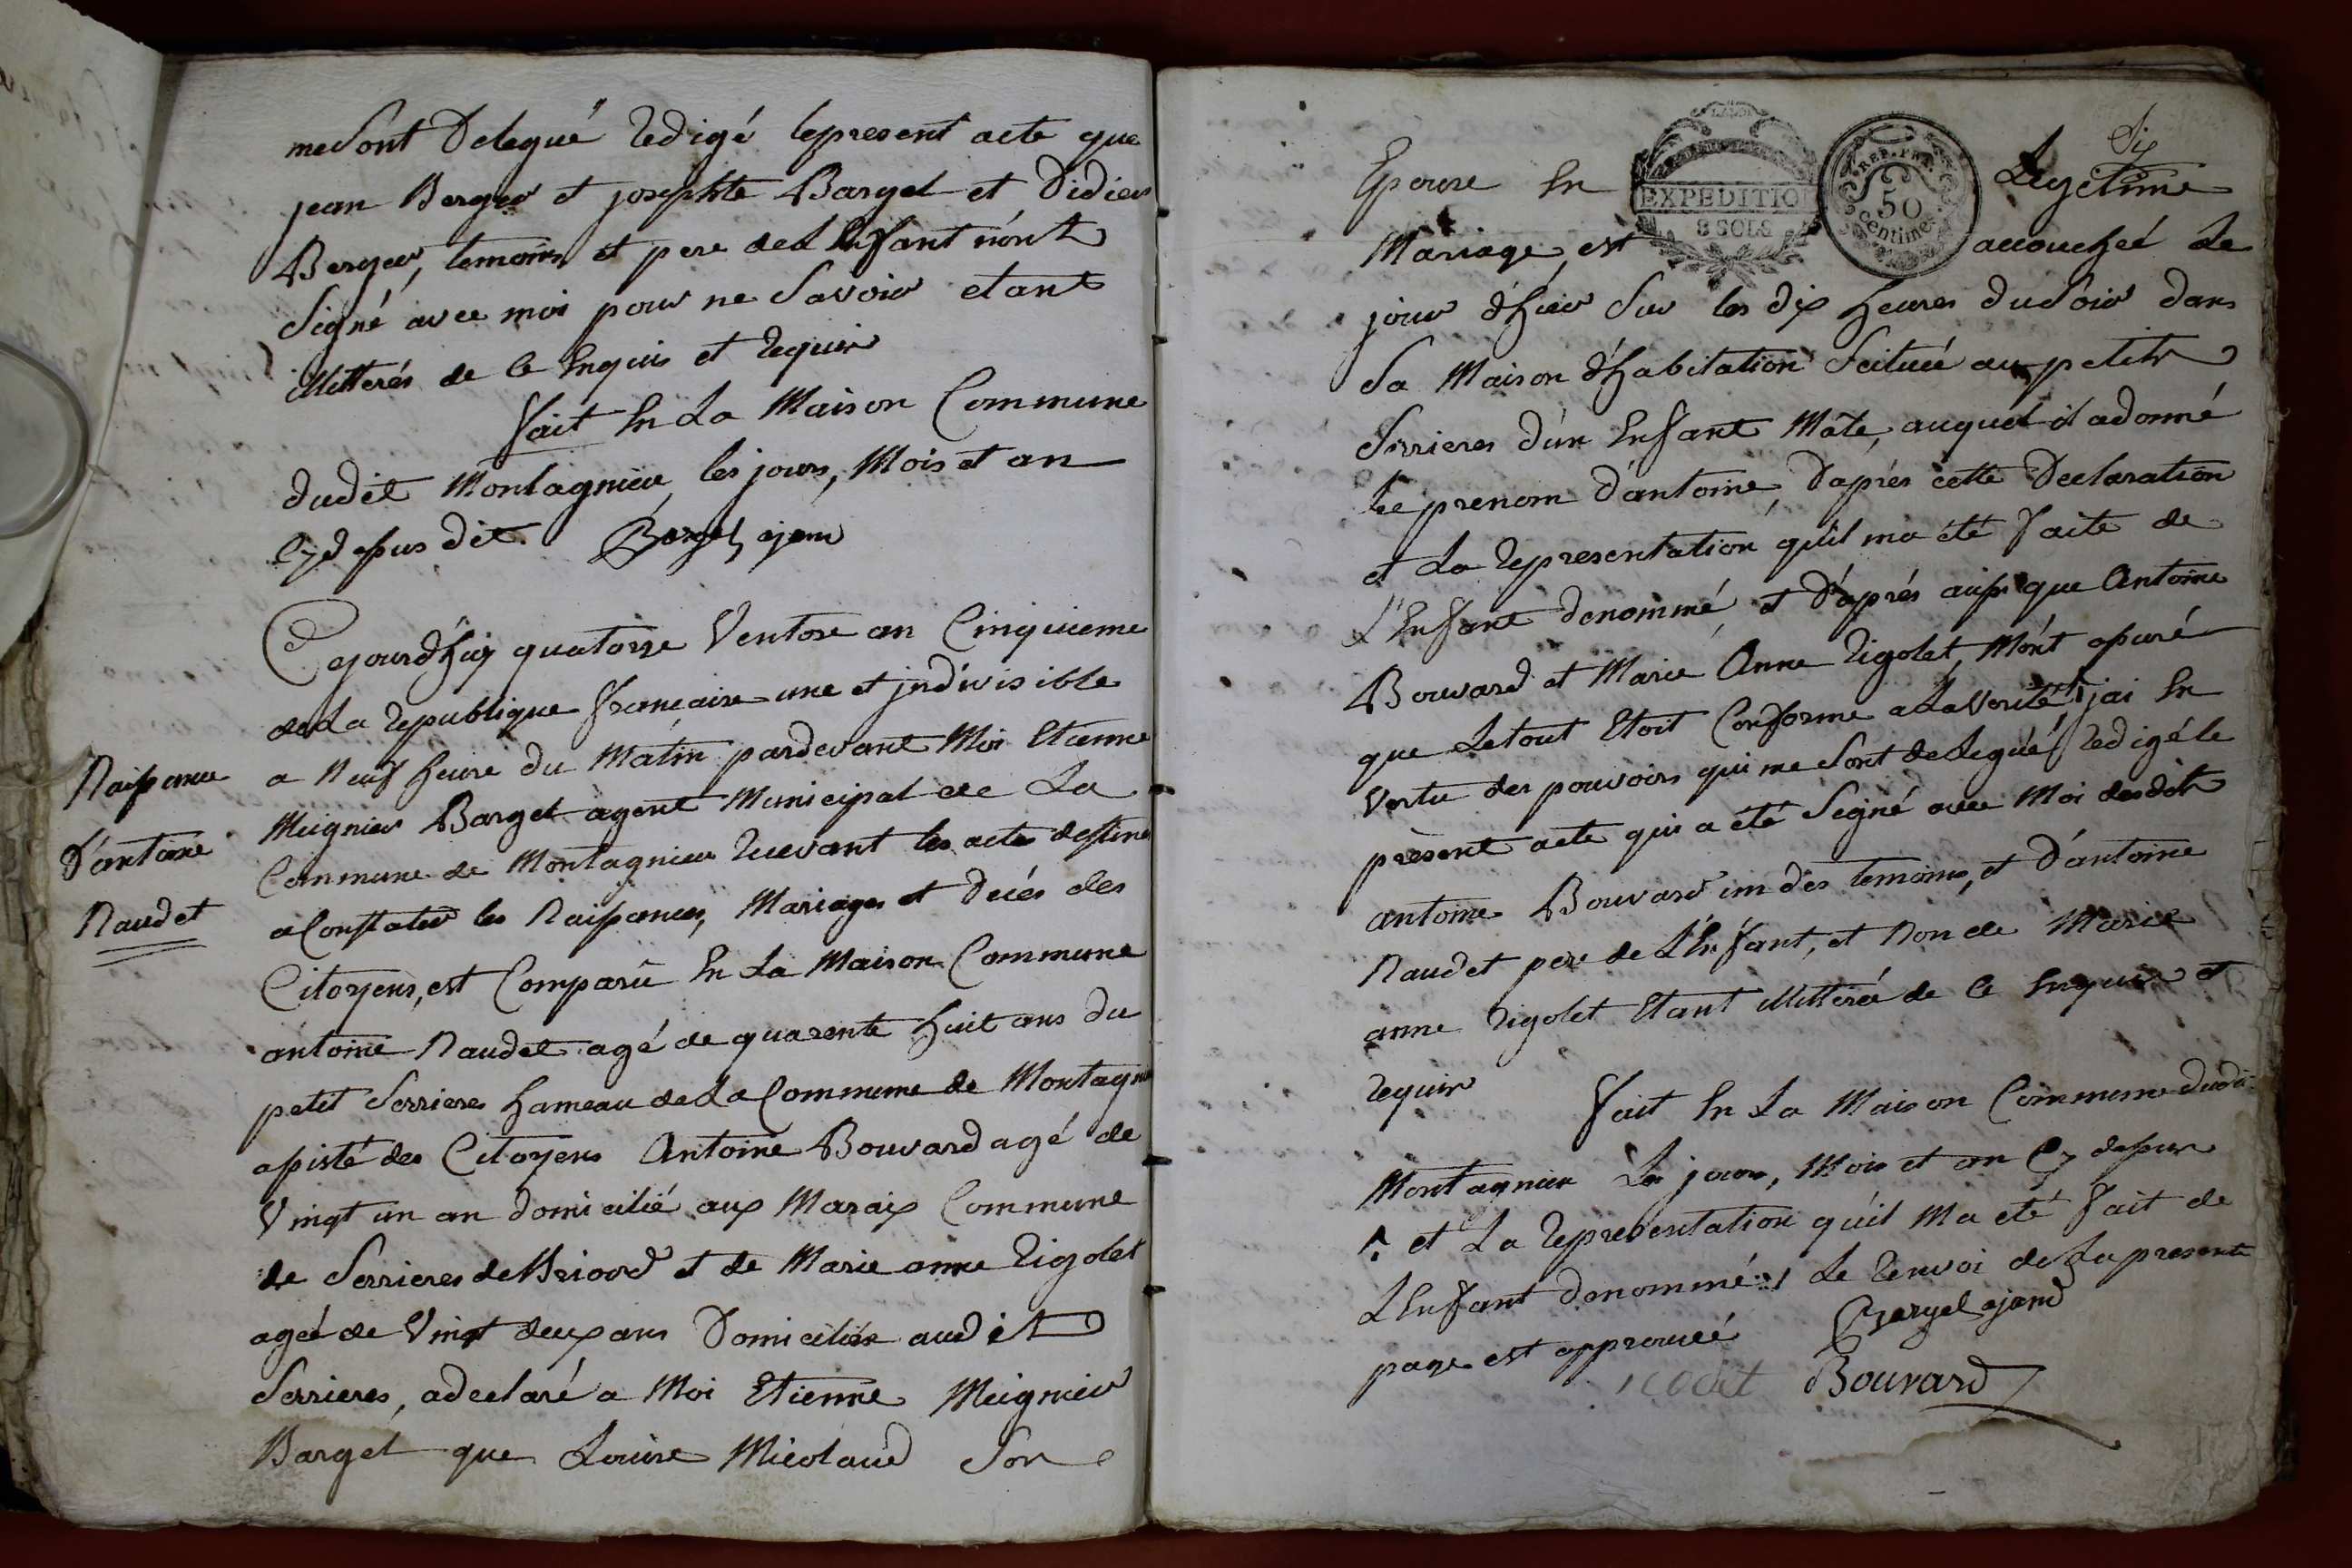 me sont Delegué redigé lepresent acte que
jean Berger et josephte Barget et Didier
Berger, temoins et pere de L'Enfant nónt
Signé avec moi pour ne Savoir etant
illitterés de ce Enquis et requis
fait En La Maison Commune
dudit Montagnieu, les jours, Mois et an
Cy dessus dit. Barget ajent
Cejourdhuy quatorze Ventose an Cinquieme
de La republique francaise une et jndivisible
a Neuf heure du Matin pardevant Moi Etienne
Meignier Barget agent Municipal de La
Commune de Montagnieu recevant les actes destinés
a Constater les Naissances, Mariages et Decés des
Citoyens, est Comparû En La Maison Commune
antoine Naudet agé de quarente huit ans du
petit Serrieres hameau de La Commune de Montagnieu
assisté des Citoyens Antoine Bouvard agé de
Vingt un an domicilié aux Maraix Commune
de Serrieres de Briord et de Marie anne Rigolet
ageé de Vingt deux ans Domiciliée audit
Serrieres, adeclaré a Moi Etienne Meignier
Barget que Louise Micolaud Son
Naissance
D'antoine
Naudet
Six
Epouse En Legitime
EXPEDITION
8 SOLS
REP. FRA.
50
centimes
Mariage, est accouchée Le
jour d'hier Sur les dix heures du Soir dans
Sa Maison d'habitation Scituée au petit
Serrieres d'un Enfant Mâle, auquel il adonné
Le prenom d'antoine, D'aprés cette Declaration
et La representation qu'il ma été faite de
L'Enfant denommé, et D'aprés aussi que Antoine
Bouvard et Marie Anne Rigolet, M'ónt assuré
que Le tout Etoit Conforme a La Verité, jai En
Vertu des pouvoirs qui me Sont delegués redigé le
présent acte qui a été Signé avec Moi desdits
antoine Bouvard un des temoins, et D'antoine
Naudet pere de L'Enfant, et Non de Marie
anne Rigolet Etant illitterée de ce Enquise et
requise
fait En La Maison Commune dudit
Montagnieu Les jours, Mois et an Cy dessus
et La representation qu'il Ma eté fait de
L'Enfant denommé Le renvoi de La presente
page est approuvée Barget ajend
Bouvard